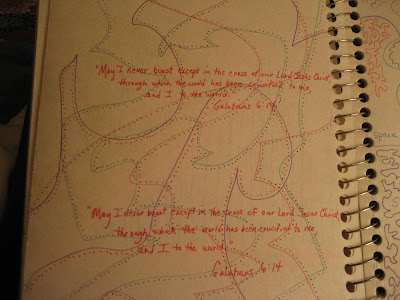 "May I never boast except in the cross of our Lord Jesus Christ,
through which the world has been crucified to me,
and I to the world."
Galatians 6:14
"May I never boast except in the cross of our Lord Jesus Christ,
through which the world has been crucified to me,
and I to the world."
Galatians 6:14
space